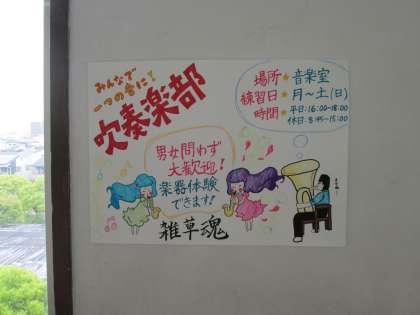 みんなで
一つの音に!
吹奏楽部
場所★音楽室
練習日★月〜土(日)
時間★平日:16:00-18:00
休日:8:45-15:00
男女問わず
大歓迎!
楽器体験
できます!
雑草魂